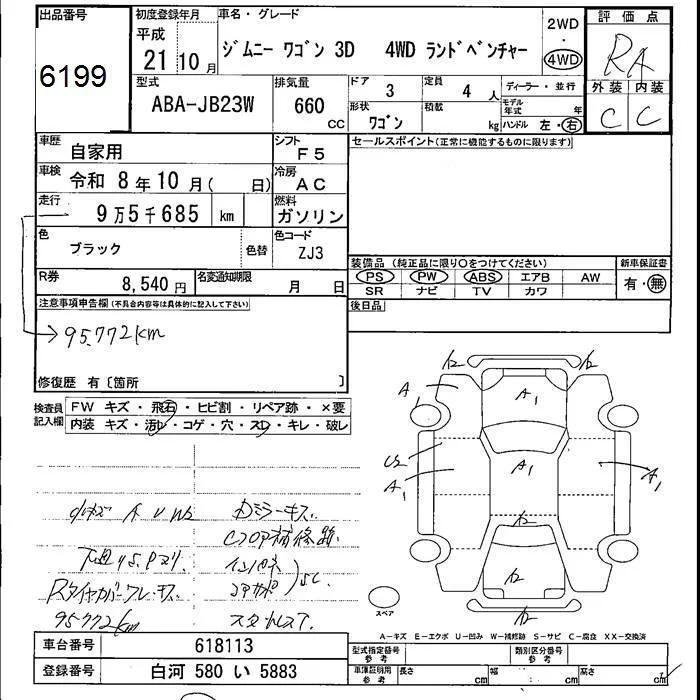 出品番号
6199
初度登録年月
平成
21 10 月
車名・グレード
ジムニー ワゴン 3D 4WD ランドベンチャー
2WD
・
4WD
評価点
RA
外装 内装
C C
型式
ABA-JB23W
排気量
660
CC
ドア
3
定員
4 人
ディーラー・並行
形状
ワゴン
積載
kg
モデル年式
年
ハンドル 左・右
車歴
自家用
シフト
F5
セールスポイント(正常に機能するものに限ります)
車検
令和 8 年 10 月( 日)
冷房
AC
走行
9 万 5 千 685 km
燃料
ガソリン
色
ブラック
色替
色コード
ZJ3
装備品 (純正品に限り○をつけてください)
PS PW ABS エアB AW
SR ナビ TV カワ
新車保証書
有・無
R券
8,540 円
名変通知期限
月 日
後日品
注意事項申告欄(不具合内容等は具体的に記入して下さい)
95.772km
修復歴 有〔箇所 〕
検査員
記入欄
FW キズ・飛石・ヒビ割・リペア跡・×要
内装 キズ・汚レ・コゲ・穴・スレ・キレ・破レ
A A1 A1 A1 A1
U2
小キズ A U W2
ロミラーキズ
COP補修跡
下廻りS.Pヌリ
インパネ
Rタイヤカバーワレ・キズ
95.772km
スタッドレスT.
スペア
A-キズ E-エクボ U-凹み W-補修跡 S-サビ C-腐食 XX-交換済
車台番号
618113
型式指定番号
参考
類別区分番号
参考
登録番号
白河 580 い 5883
車庫証明用
参考
長さ cm 幅 cm 高さ cm